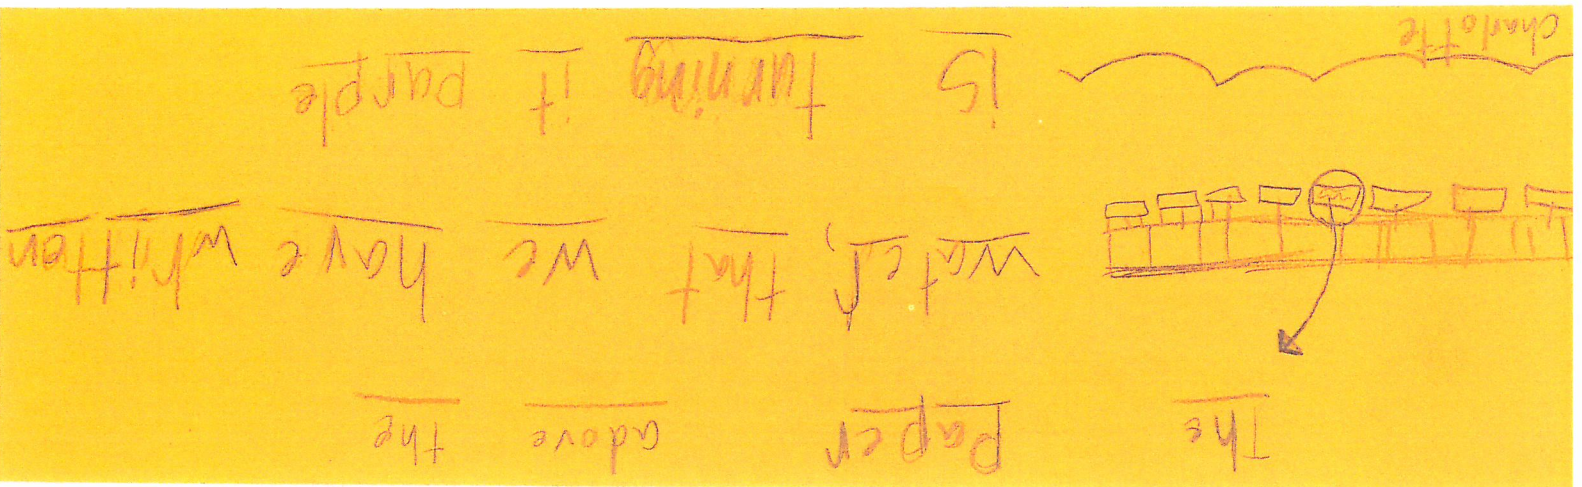 The Paper adove the
water, that we have written
is turning it purple
Charlotte